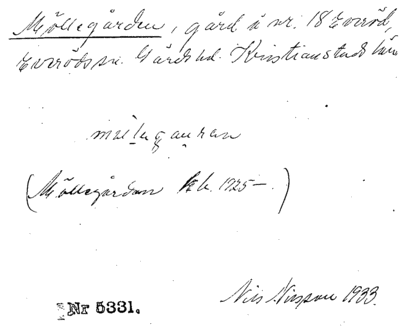 Möllegården, gård å nr. 18 Everöd,
Everöds sn. Gärds hd. Kristianstads län
(Möllegården kb. 1925—)
Nils Nilsson 1933.
Nr 5331.